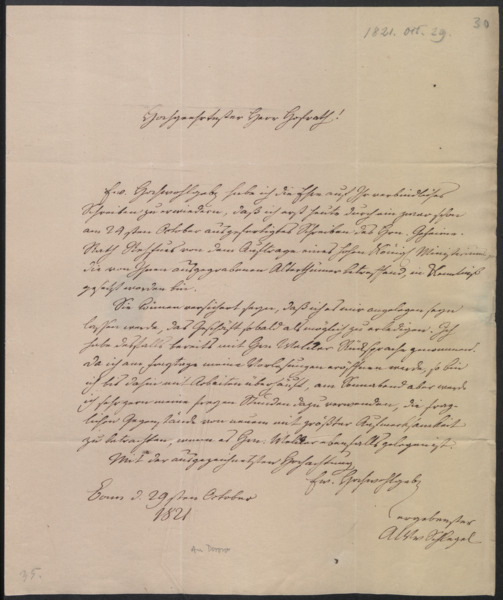 1821. Oct. 29.
30
Hochgeehrtester Herr Hofrath!
Ew. Hochwohlgeb. habe ich die Ehre auf Ihr verbindliches
Schreiben zu erwiedern, daß ich erst heute durch ein zwar schon
am 24sten October ausgefertigtes Schreiben des Hrn. Geheime-
Rath Rehfues von dem Auftrage eines hohen Königl. Ministerium
die von Ihnen ausgegrabenen Alterthümer betreffend, in Kenntniß
gesetzt worden bin.
Sie können versichert seyn, daß ich es mir angelegen seyn
lassen werde, das Geschäft sobald als möglich zu erledigen. Ich
habe deßfalls bereits mit Hrn. Welcker Rücksprache genommen.
Da ich am Freytage meine Vorlesungen eröffnen werde, so bin
ich bis dahin mit Arbeiten überhäuft, am Sonnabend aber werde
ich sehr gern meine freyen Stunden dazu verwenden, die frag-
lichen Gegenstände von neuem mit größter Aufmerksamkeit
zu betrachten, wenn es Hrn. Welcker ebenfalls gelegen ist.
Mit der ausgezeichnetsten Hochachtung
Ew. Hochwohlgeb.
Bonn d. 29sten October
1821
ergebenster
AWvSchlegel
An Dorow
35.